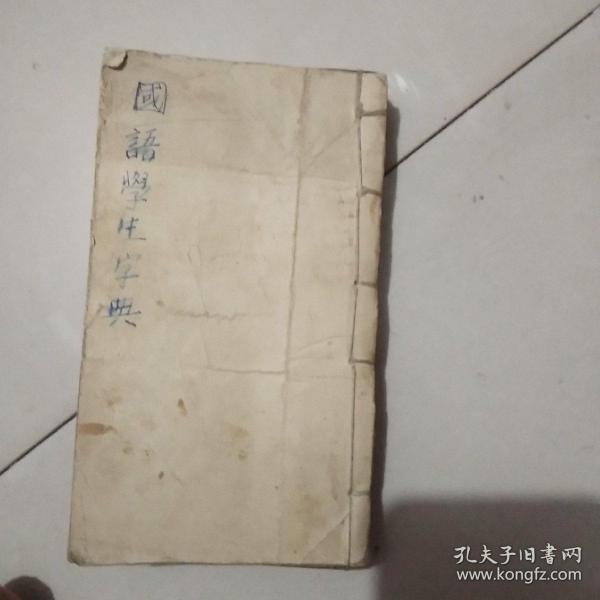 國語學生字典
孔夫子旧書网
www.kongfz.com